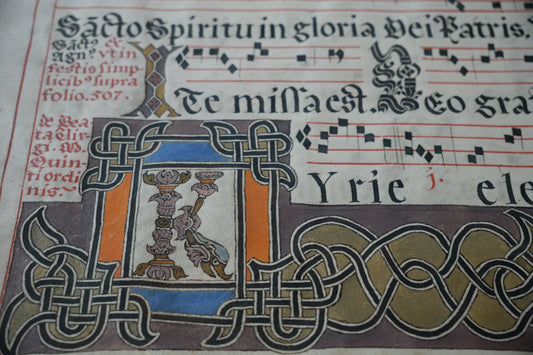 Sācto Spiritu in gloria Dei Patris.
Sāct⁹ &
Agn⁹ vt in
festis sim
plicib⁹ supra
folio. 507.
Ite missa est. Deo gra
de Bea
ta Virgi.
Quin
ti ordi
nis.
Kyrie j. ele